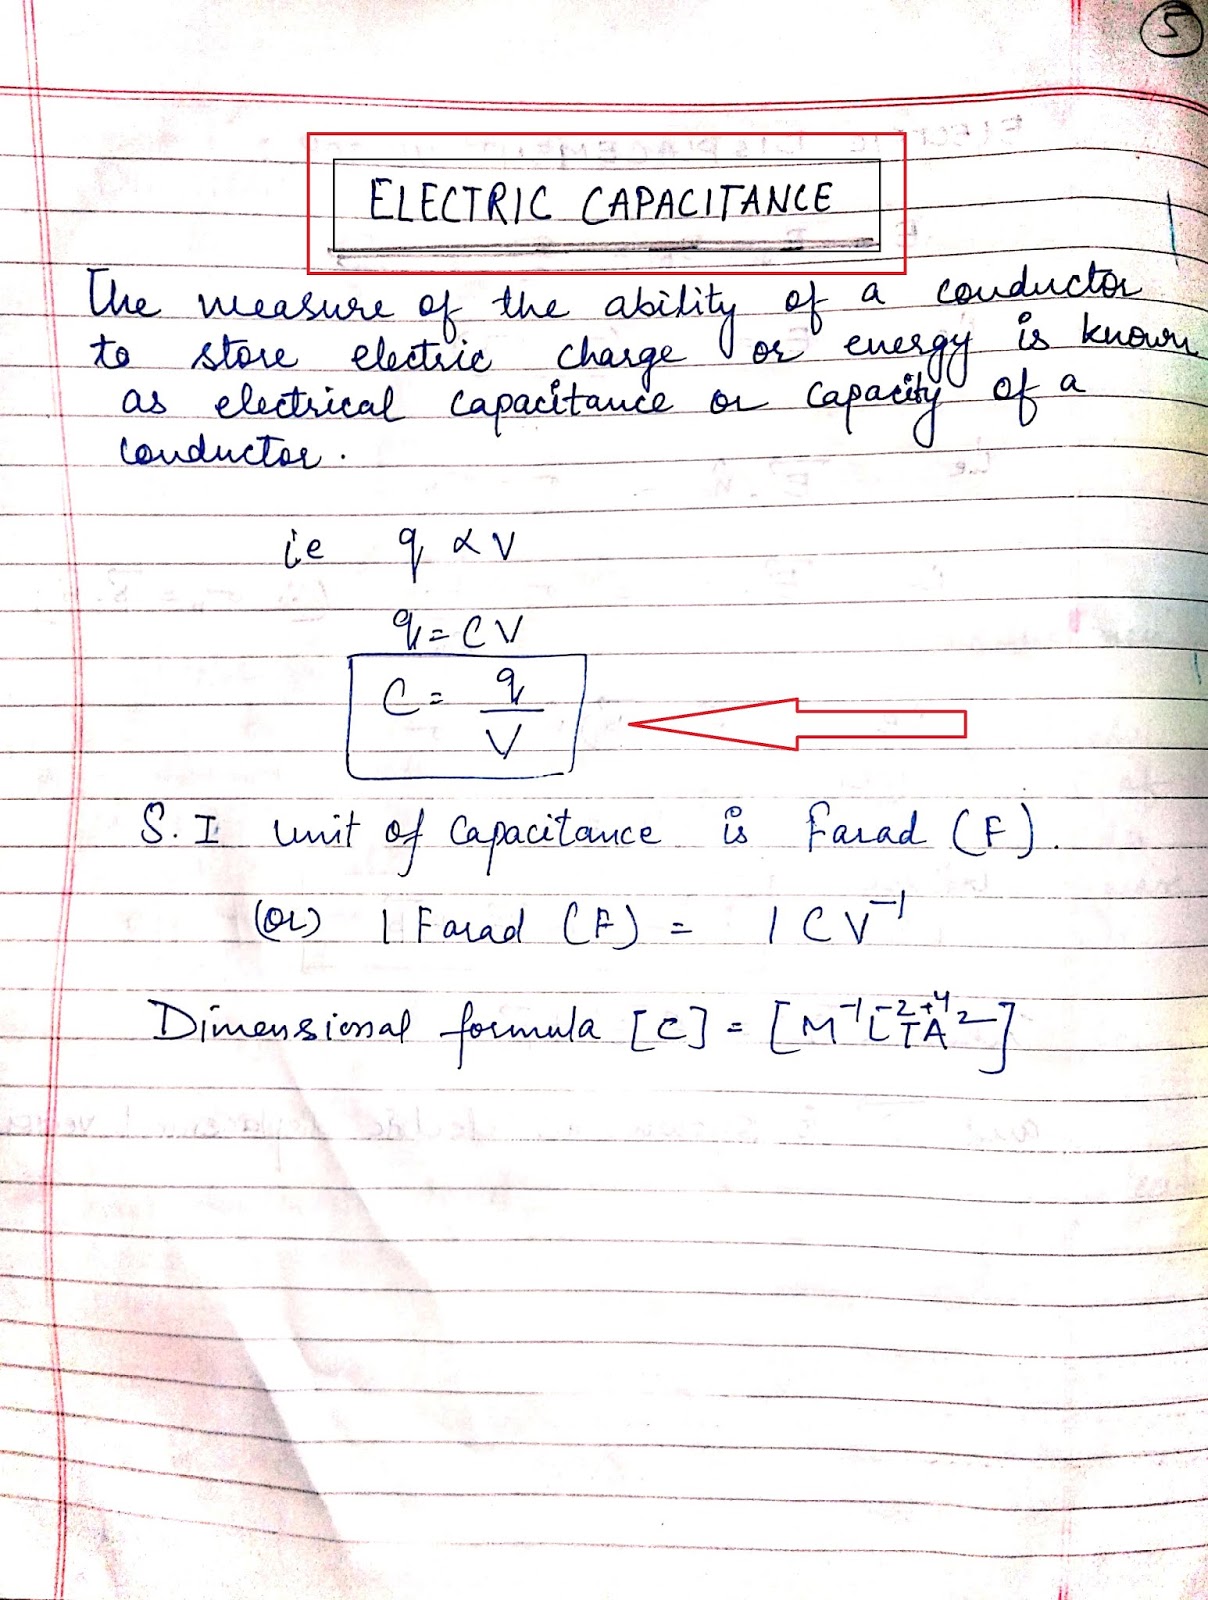 5
ELECTRIC CAPACITANCE
The measure of the ability of a conductor
to store electric charge or energy is known
as electrical capacitance or capacity of a
conductor.
ie q ∝ V
q = CV
C = q/V
S.I unit of capacitance is Farad (F).
(or) 1 Farad (F) = 1 CV⁻¹
Dimensional formula [C] = [M⁻¹L⁻²T⁺⁴A²]